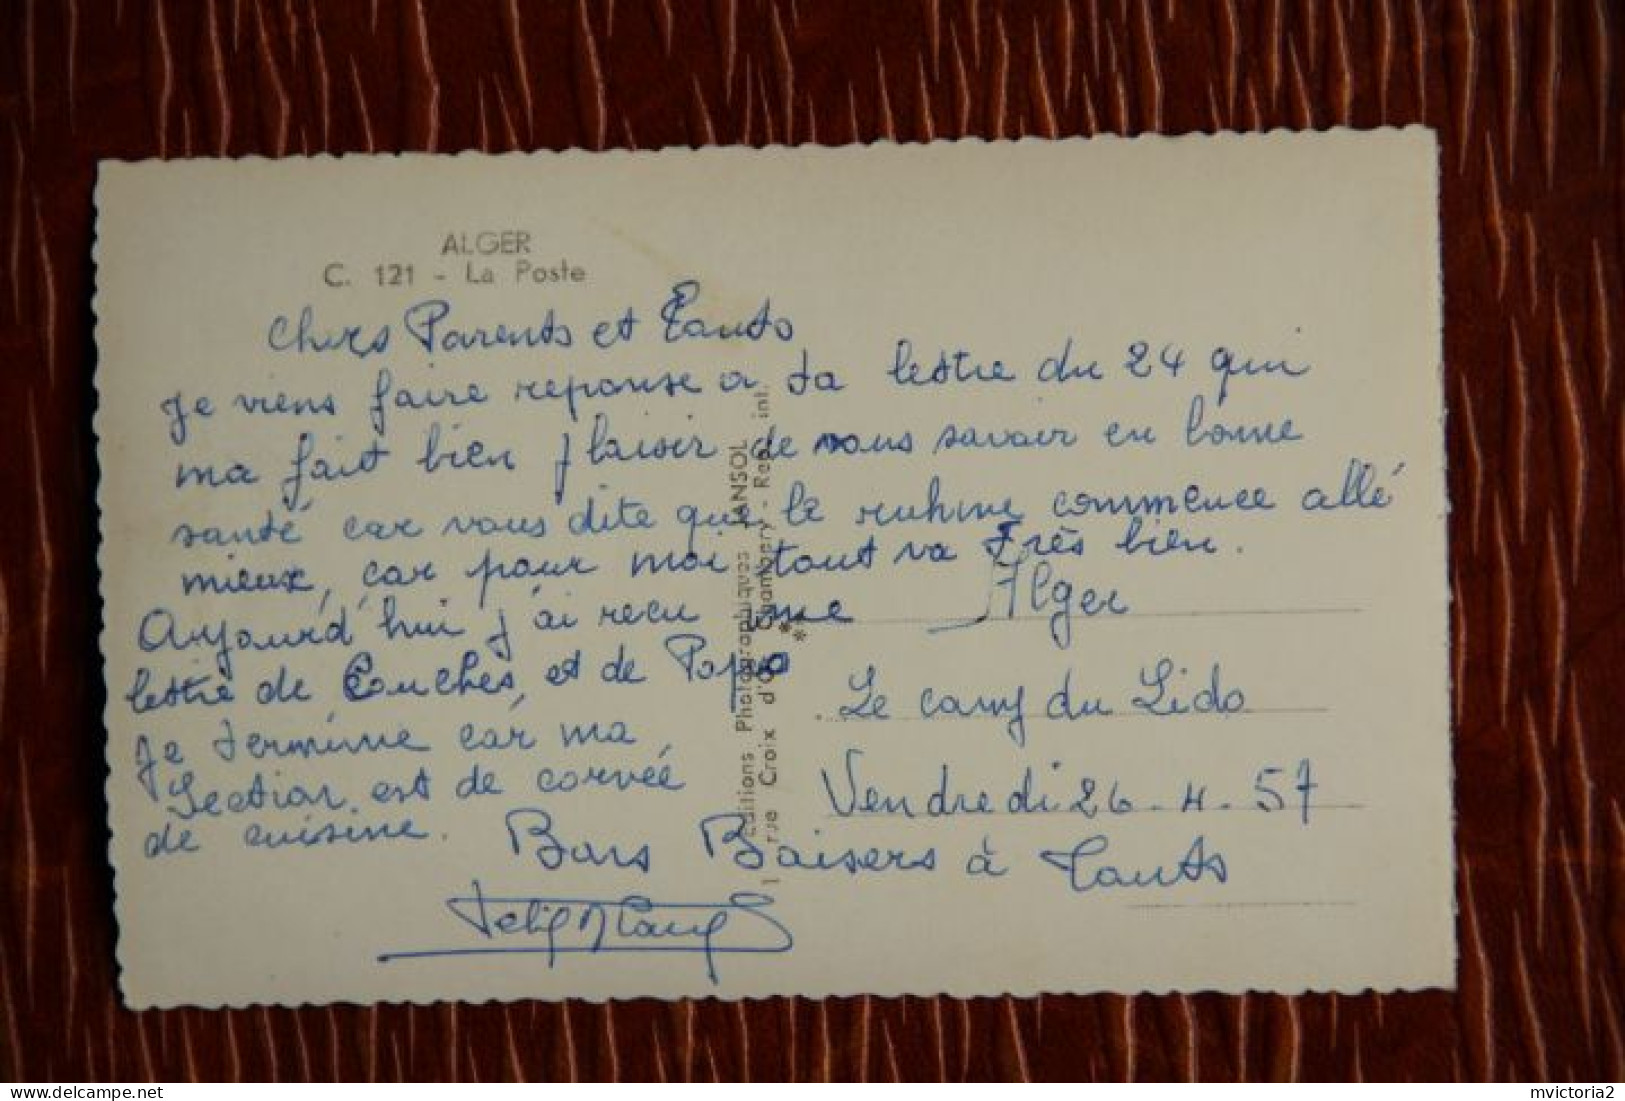 ALGER
C. 121 - La Poste
Chers Parents et Tants
Je viens faire reponse a ta lestre du 24 qui
ma fait bien plaisir de vous savoir en bonne
santé car vous dite que le ruhme commence allé
mieux, car pour moi tout va très bien.
Aujourd'hui j'ai recu une
lestre de Couches, et de Papa
Je termine car ma
Section est de corvée
de cuisine.
Alger
Le camp du Lido
Vendredi 26-4-57
Bons Baisers à Tants
Editions Photographiques JANSOL
1 rue Croix d'Or Chambéry - Rep. int.
delcampe.net
mvictoria2